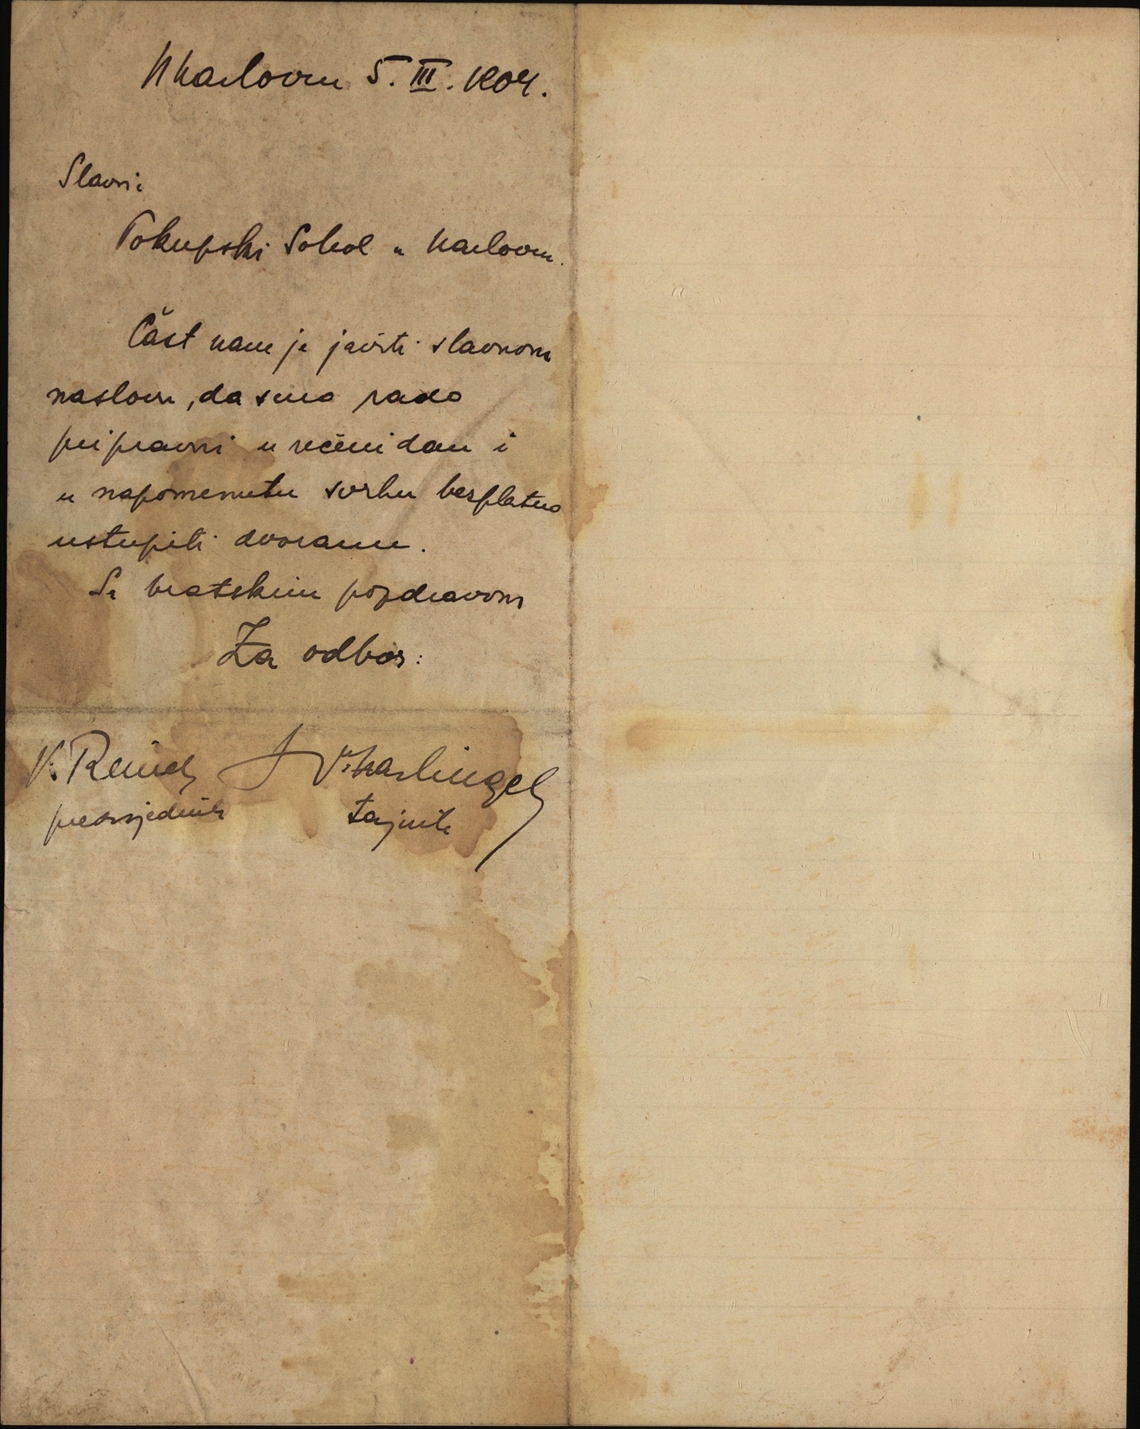 U Karlovcu 5. III. 1904.
Slavni
Pokupski Sokol u Karlovcu.
Čast nam je javiti slavnom
naslovu, da smo rado
pripravni u rečeni dan i
u napomenutu svrhu besplatno
ustupiti dvoranu.
Sa bratskim pozdravom
Za odbor:
V. Reiner
predsjednik tajnik